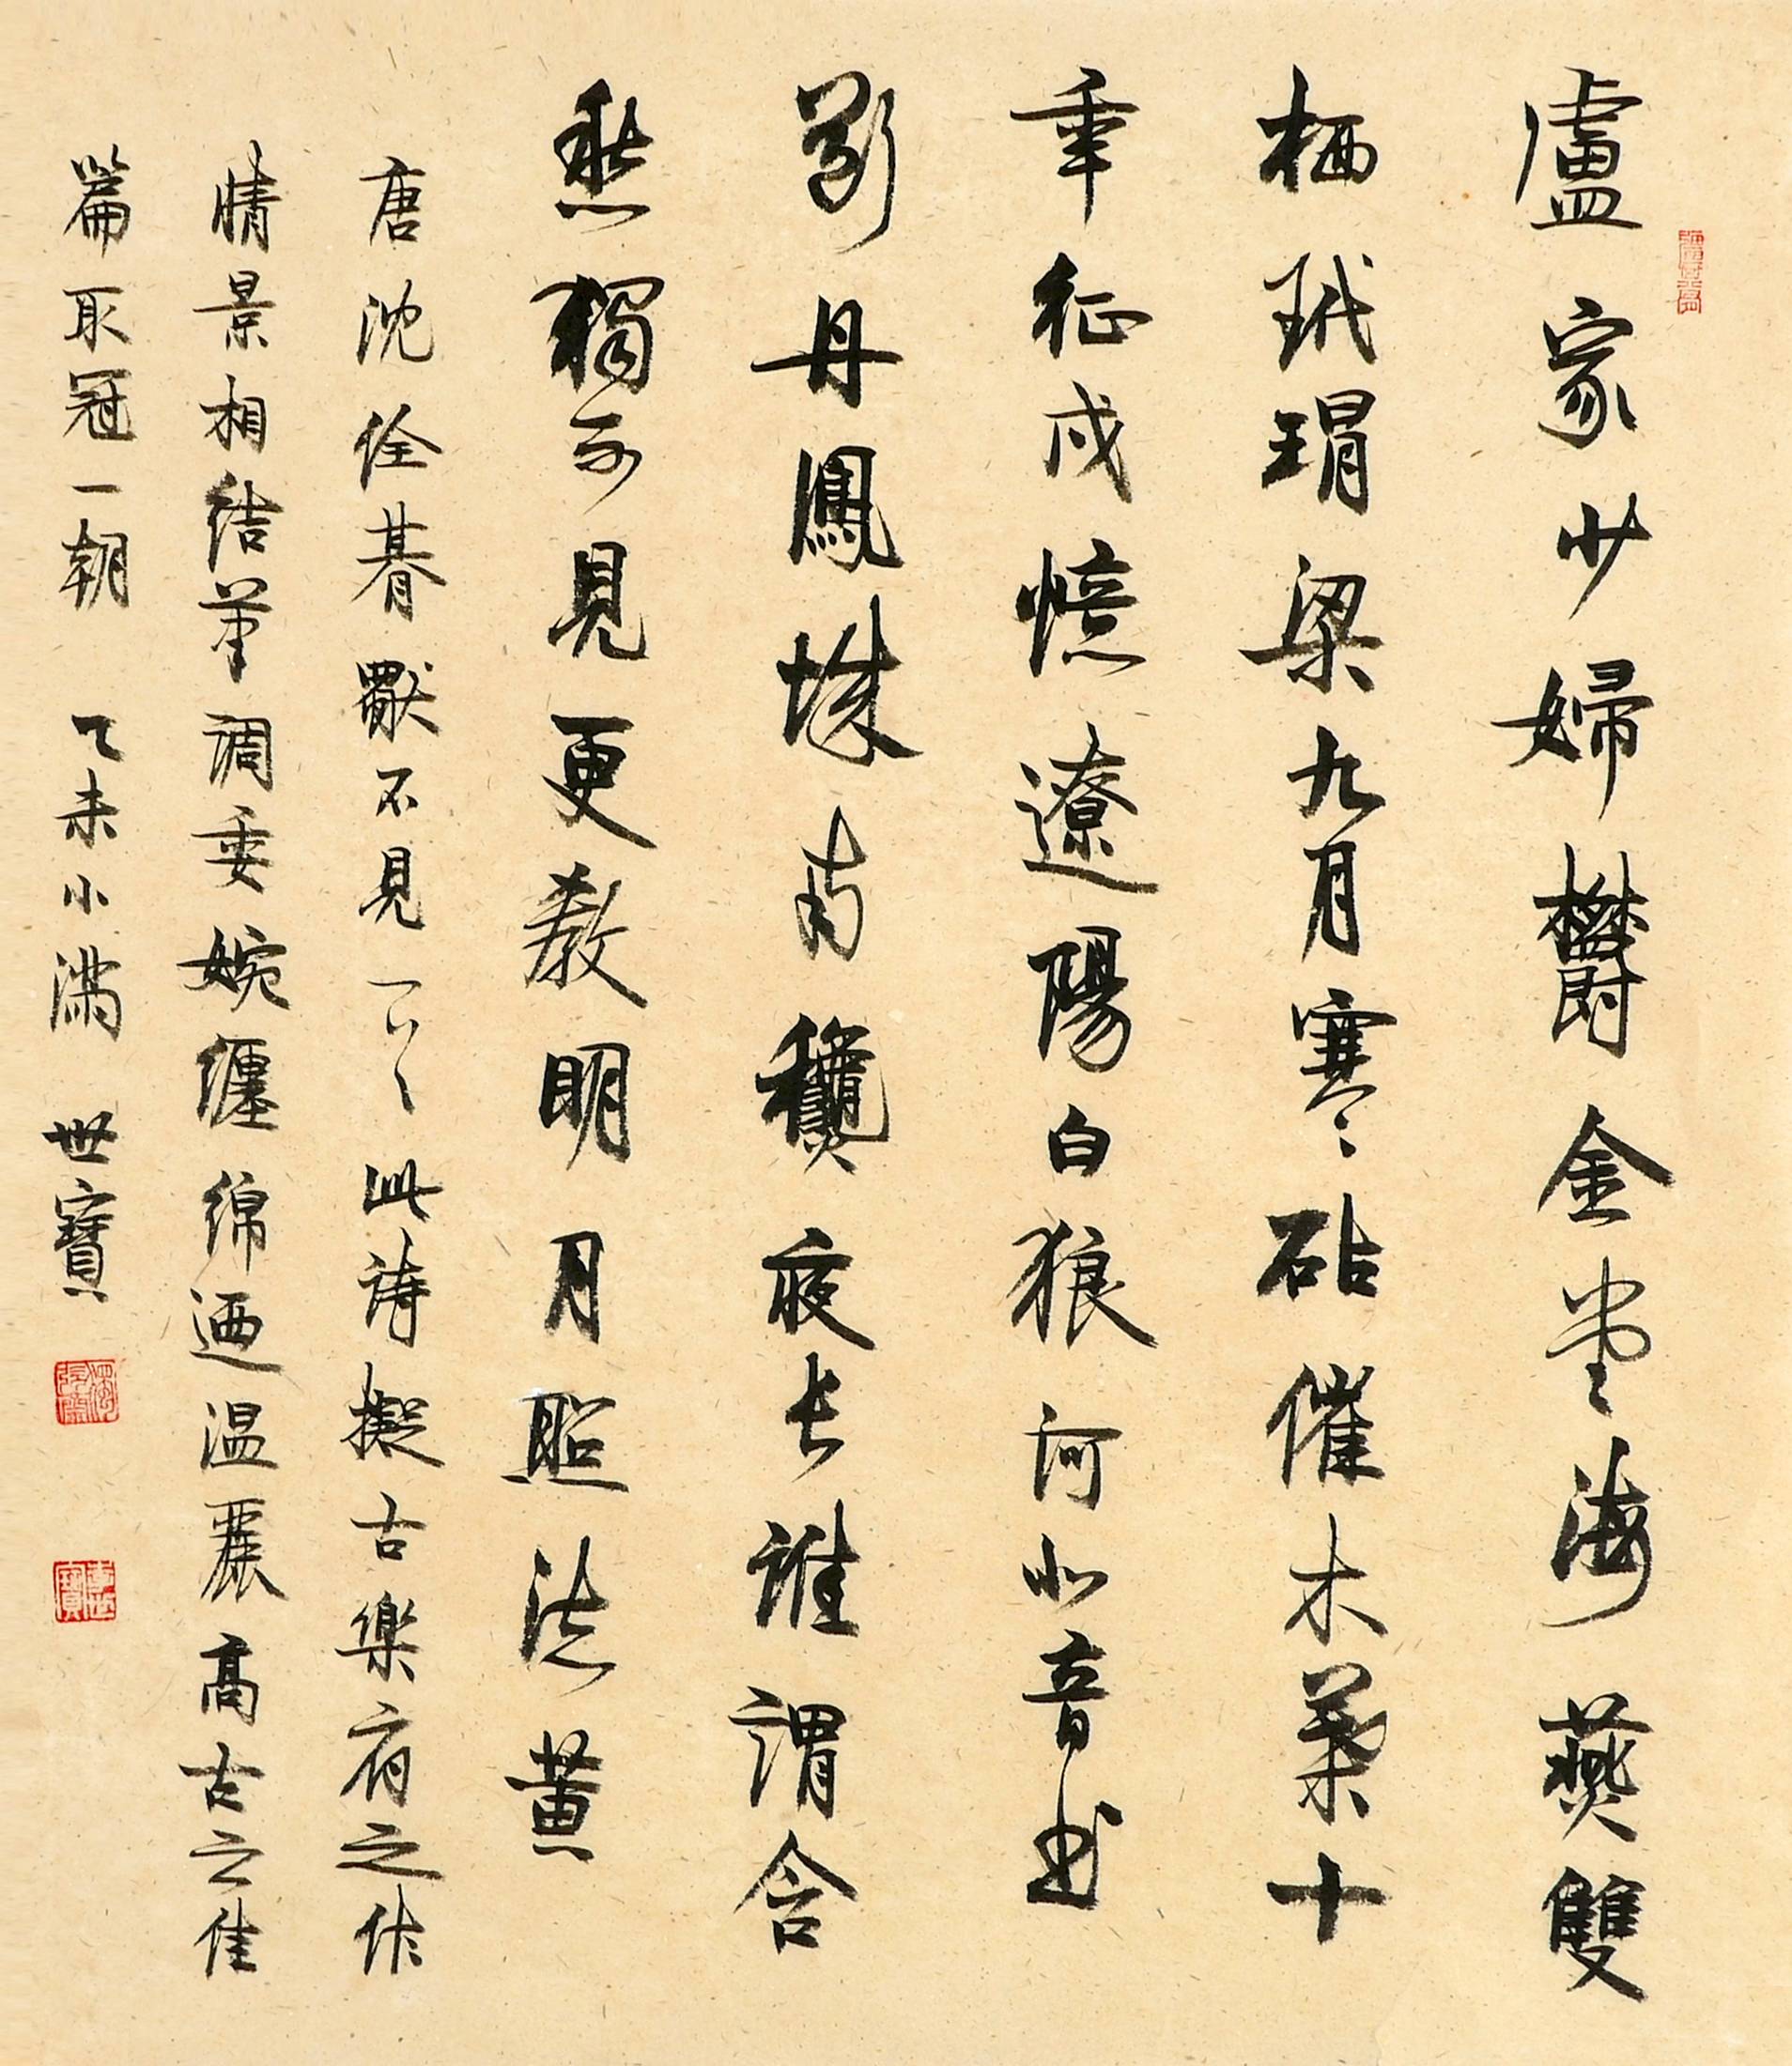 盧家少婦鬱金堂海燕雙
栖玳瑁梁九月寒砧催木葉十
年征戍憶遼陽白狼河北音書
斷丹鳳城南龝夜長誰謂含
愁獨不見更教明月照流黃
唐沈佺朞獨不見一首此詩擬古樂府之作
情景相結筆調委婉纏綿迺温麗高古之佳
篇取冠一朝 乙未小滿 世寶